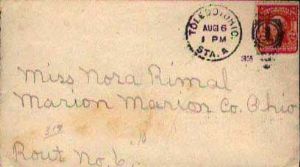 TOLEDO, OHIO.
AUG 6
1 PM
STA. A
Miss Nora Rimal
Marion Marion Co. Ohio
Rout No. 6